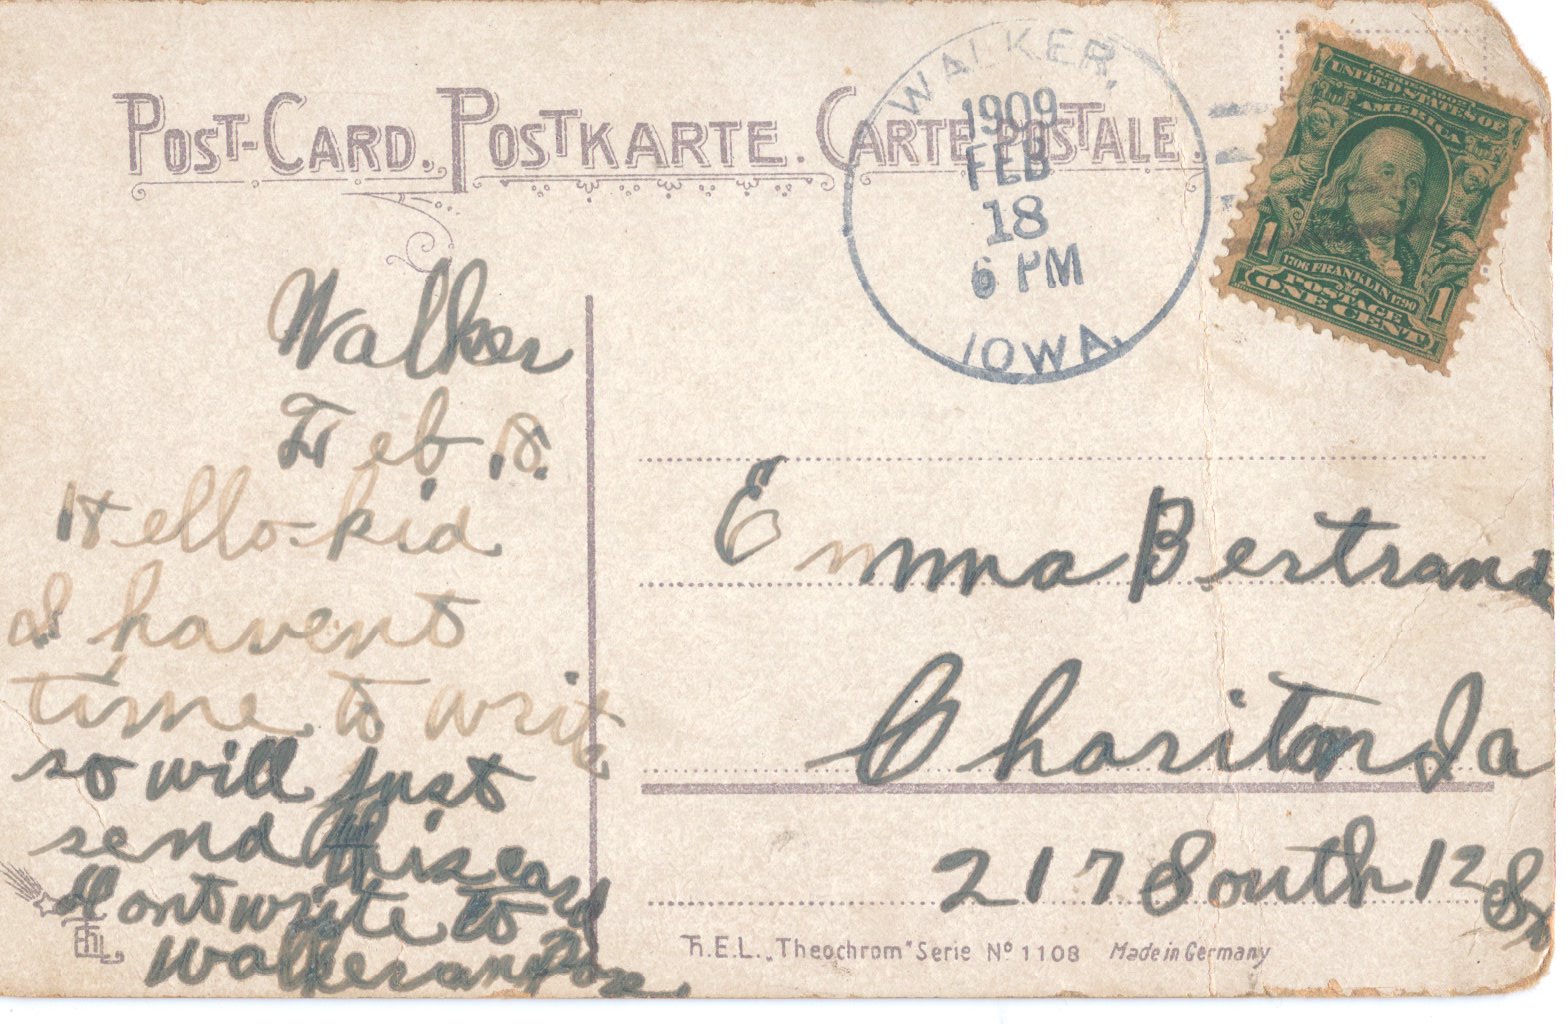 POST-CARD. POSTKARTE. CARTE POSTALE.
WALKER,
1909
FEB
18
6 PM
IOWA.
SERIES 1902
UNITED STATES OF
AMERICA
1 1
1706 FRANKLIN 1790
POSTAGE
ONE CENT
Walker
Feb. 18.
Hello-kid
I havent
time to write
so will just
send this card
dont write to
Walker
Emma Bertrand
Chariton Ia
217 South 12 St
T.E.L. „Theochrom" Serie Nº 1108 Made in Germany